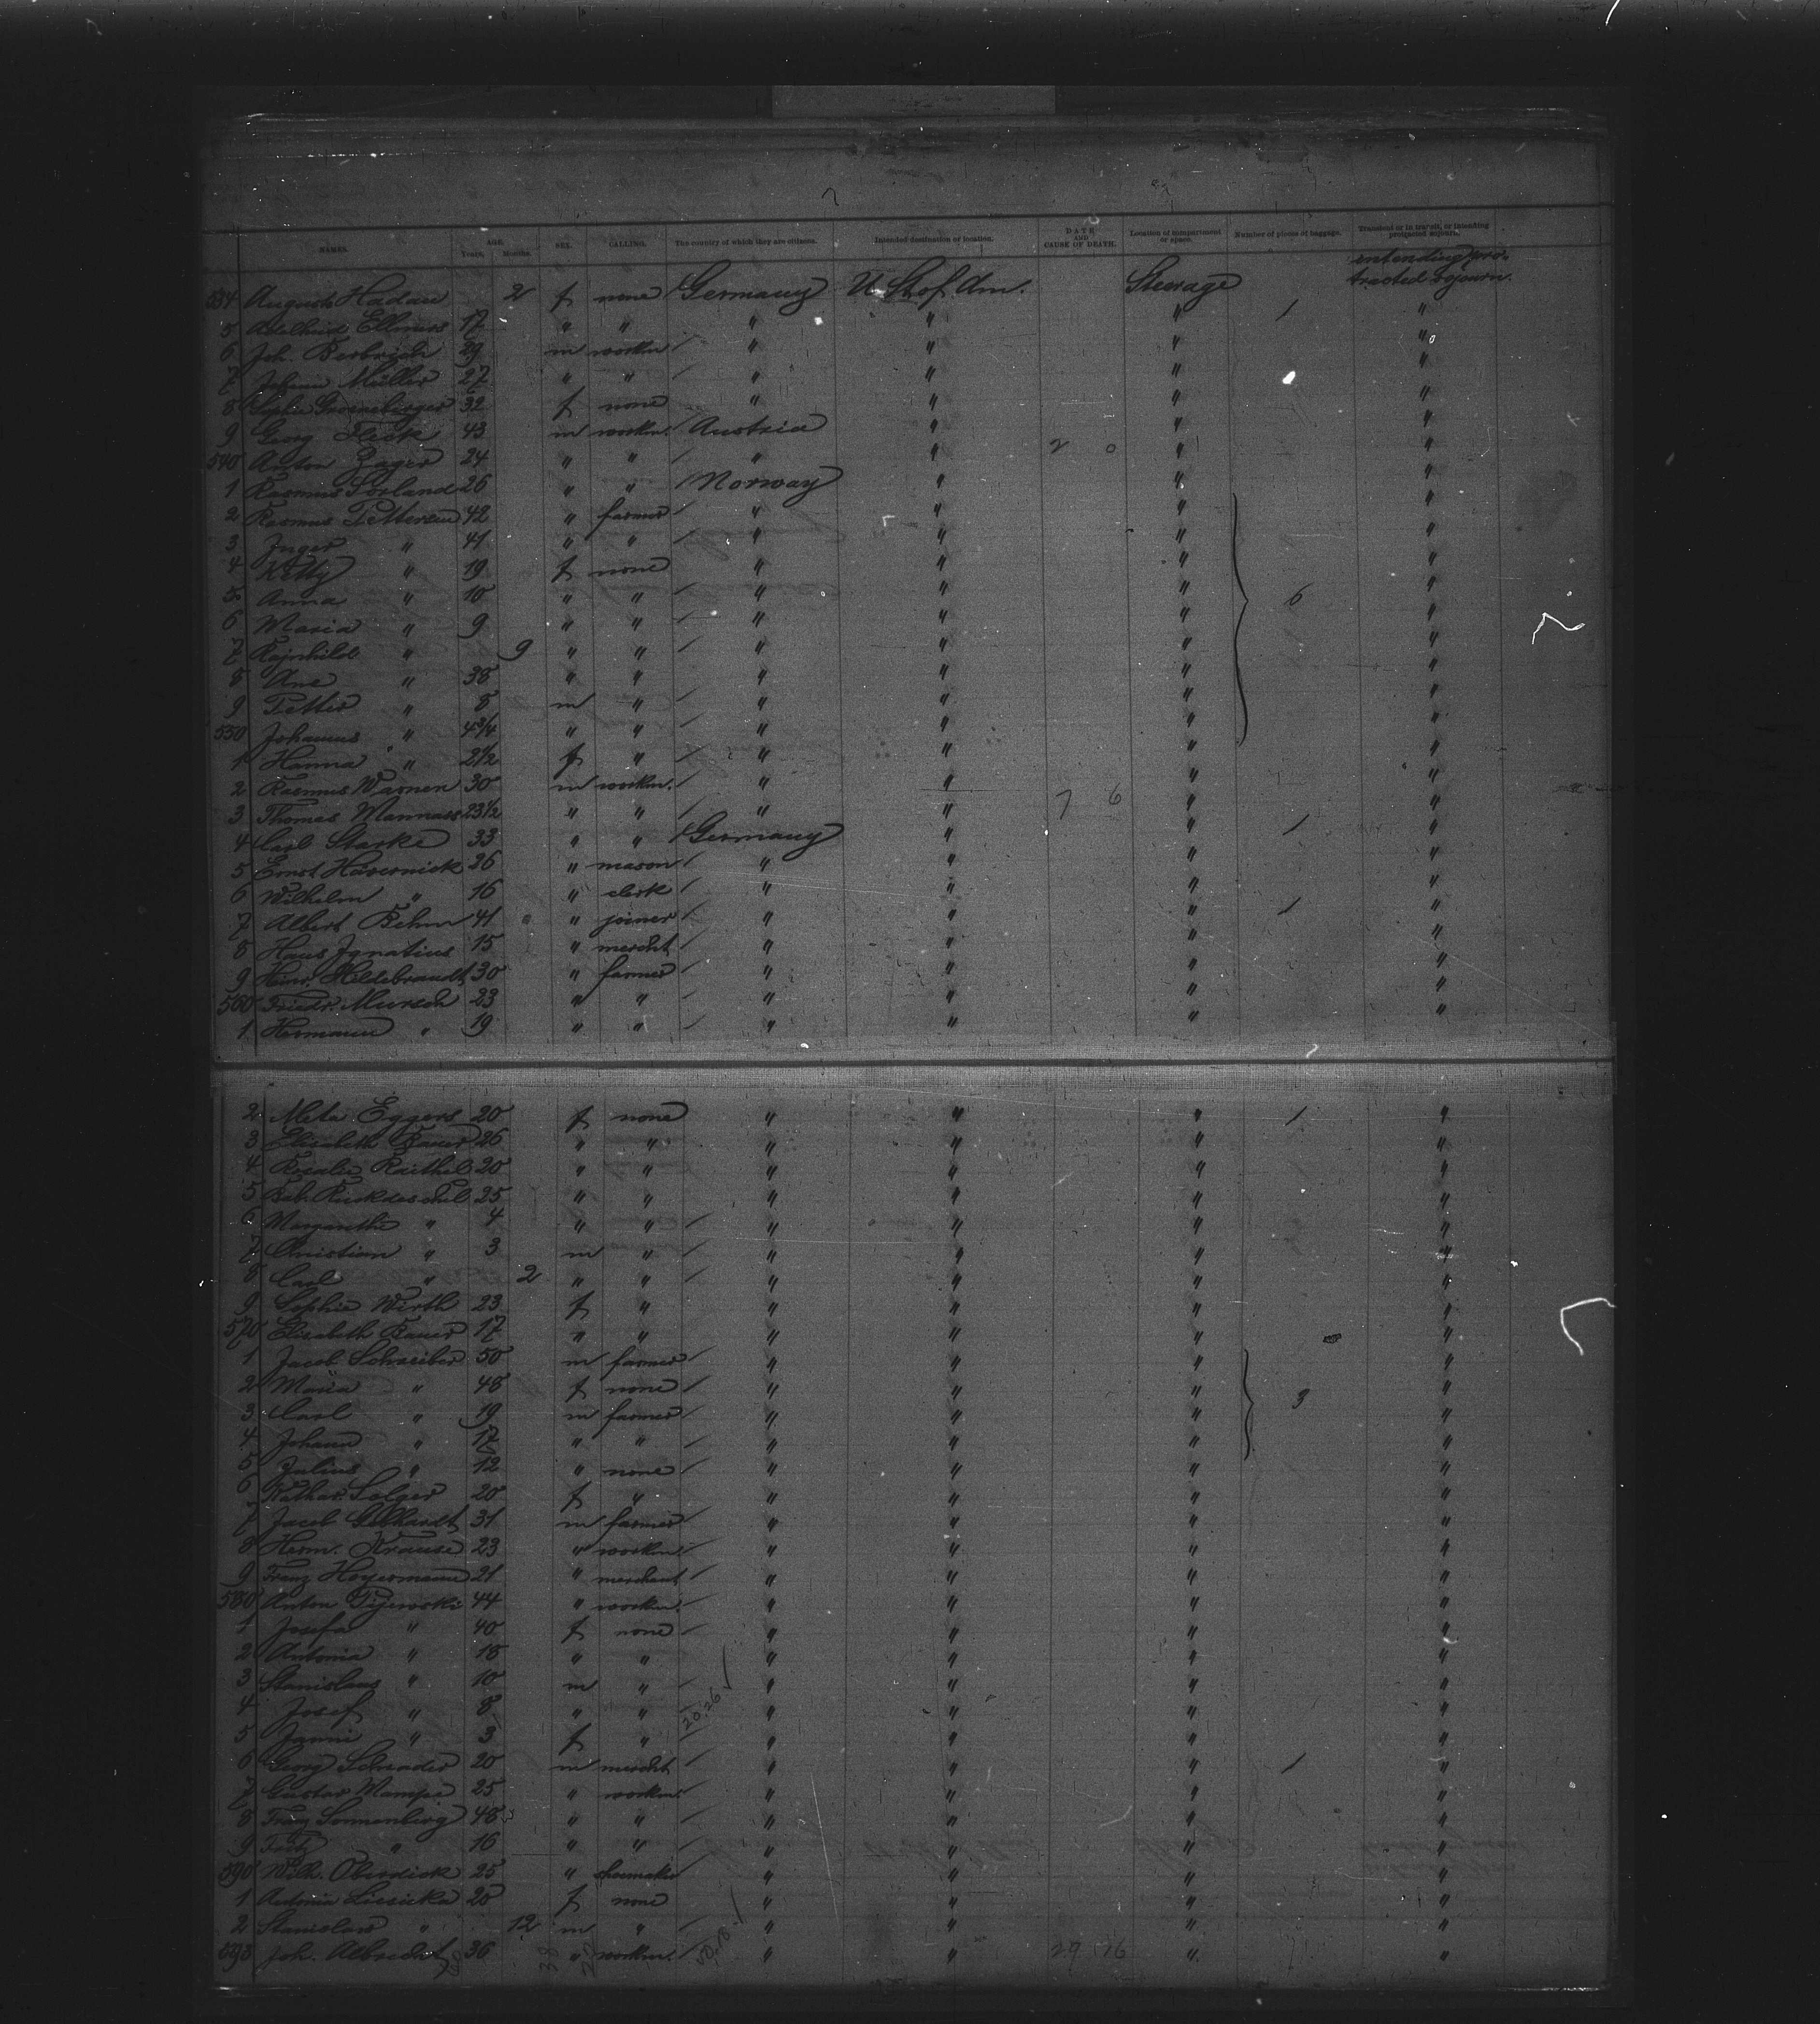 NAMES. AGE. Years. Months. SEX. CALLING. The country of which they are citizens. Intended destination or location. DATE AND CAUSE OF DEATH. Location of compartment or space. Number of pieces of baggage. Transient or in transit, or intending protracted sojourn.
534 Auguste Hadau 2 f none Germany U. St. of Am. Steerage intending protracted sojourn.
5 Adelheid Ellmers 17 " " " " " 1 "
6 Joh. 29 m workm. " " " "
7 Johann Müller 27 " " " " " "
8 Sophie 32 f none " " " "
9 Georg Fleck 43 m workm. Austria " " "
540 Anton Zager 24 " " " " 2 0 " "
1 Rasmus Sorland 26 " " Norway " " "
2 Rasmus Pettersen 42 " farmer " " " "
3 Inger " 41 " " " " " "
4 Kitty " 19 f none " " " "
5 Anna " 10 " " " " " 6 "
6 Maria " 9 " " " " " "
7 Rajnhild " 9 " " " " " "
8 Ane " 38 " " " " " "
9 Petter " 8 m " " " " "
550 Johannes " 4 3/4 " " " " " "
1 Hanna " 2 1/2 f " " " " "
2 Rasmus Warnen 30 m workm. " " " "
3 Thomas Mannass 23 1/2 " " " " 7 6 " "
4 Carl Starke 33 " " Germany " " 1 "
5 Ernst Havernick 26 " mason " " " "
6 Wilhelm " 16 " clerk " " " "
7 Albert Behm 41 " joiner " " " 1 "
8 Hans Ignatius 15 " mercht " " " "
9 Heinr. Hildebrandt 30 " farmer " " " "
560 Friedr. Mursch 23 " " " " " "
1 Hermann " 19 " " " " " "
2 Meta Eggers 20 f none " " " 1 "
3 Elisabeth Bauer 26 " " " " " "
4 Rosalie Raithel 20 " " " " " "
5 Bab. Ruckdeschel 25 " " " " " "
6 Margarethe " 4 " " " " " "
7 Christian " 3 m " " " " "
8 Carl " 2 " " " " " "
9 Sophie Wirth 23 f " " " " "
570 Elisabeth Bauer 17 " " " " " "
1 Jacob Schreiber 50 m farmer " " " "
2 Maria " 48 f none " " " "
3 Carl " 19 m farmer " " " 3 "
4 Johann " 17 " " " " " "
5 Julius " 12 " none " " " "
6 Kathar. Solger 20 f " " " " "
7 Jacob Gebhardt 31 m farmer " " " "
8 Herm. Krause 23 " workm. " " " "
9 Franz Heyermann 21 " merchant " " " "
580 Anton Tijewski 44 " workm. " " " "
1 Josefa " 40 f none " " " "
2 Antonia " 18 " " " " " "
3 Stanislaus " 10 m " " " " "
4 Josef " 8 " " 20.26 " " " "
5 " 3 f " " " " "
6 Georg Schrader 20 m mercht " " " 1 "
7 Gustav Mampe 25 " workm. " " " "
8 Franz Sonnenberg 48 " " " " " "
9 Fritz " 16 " " " " " "
590 Wilh. Oberdick 25 " shoemaker " " " "
1 Antonia 20 f none " " " "
2 Stanislaw " 12 m " " " " "
593 Joh. Albrecht 36 " workm. " " 29 76 " "